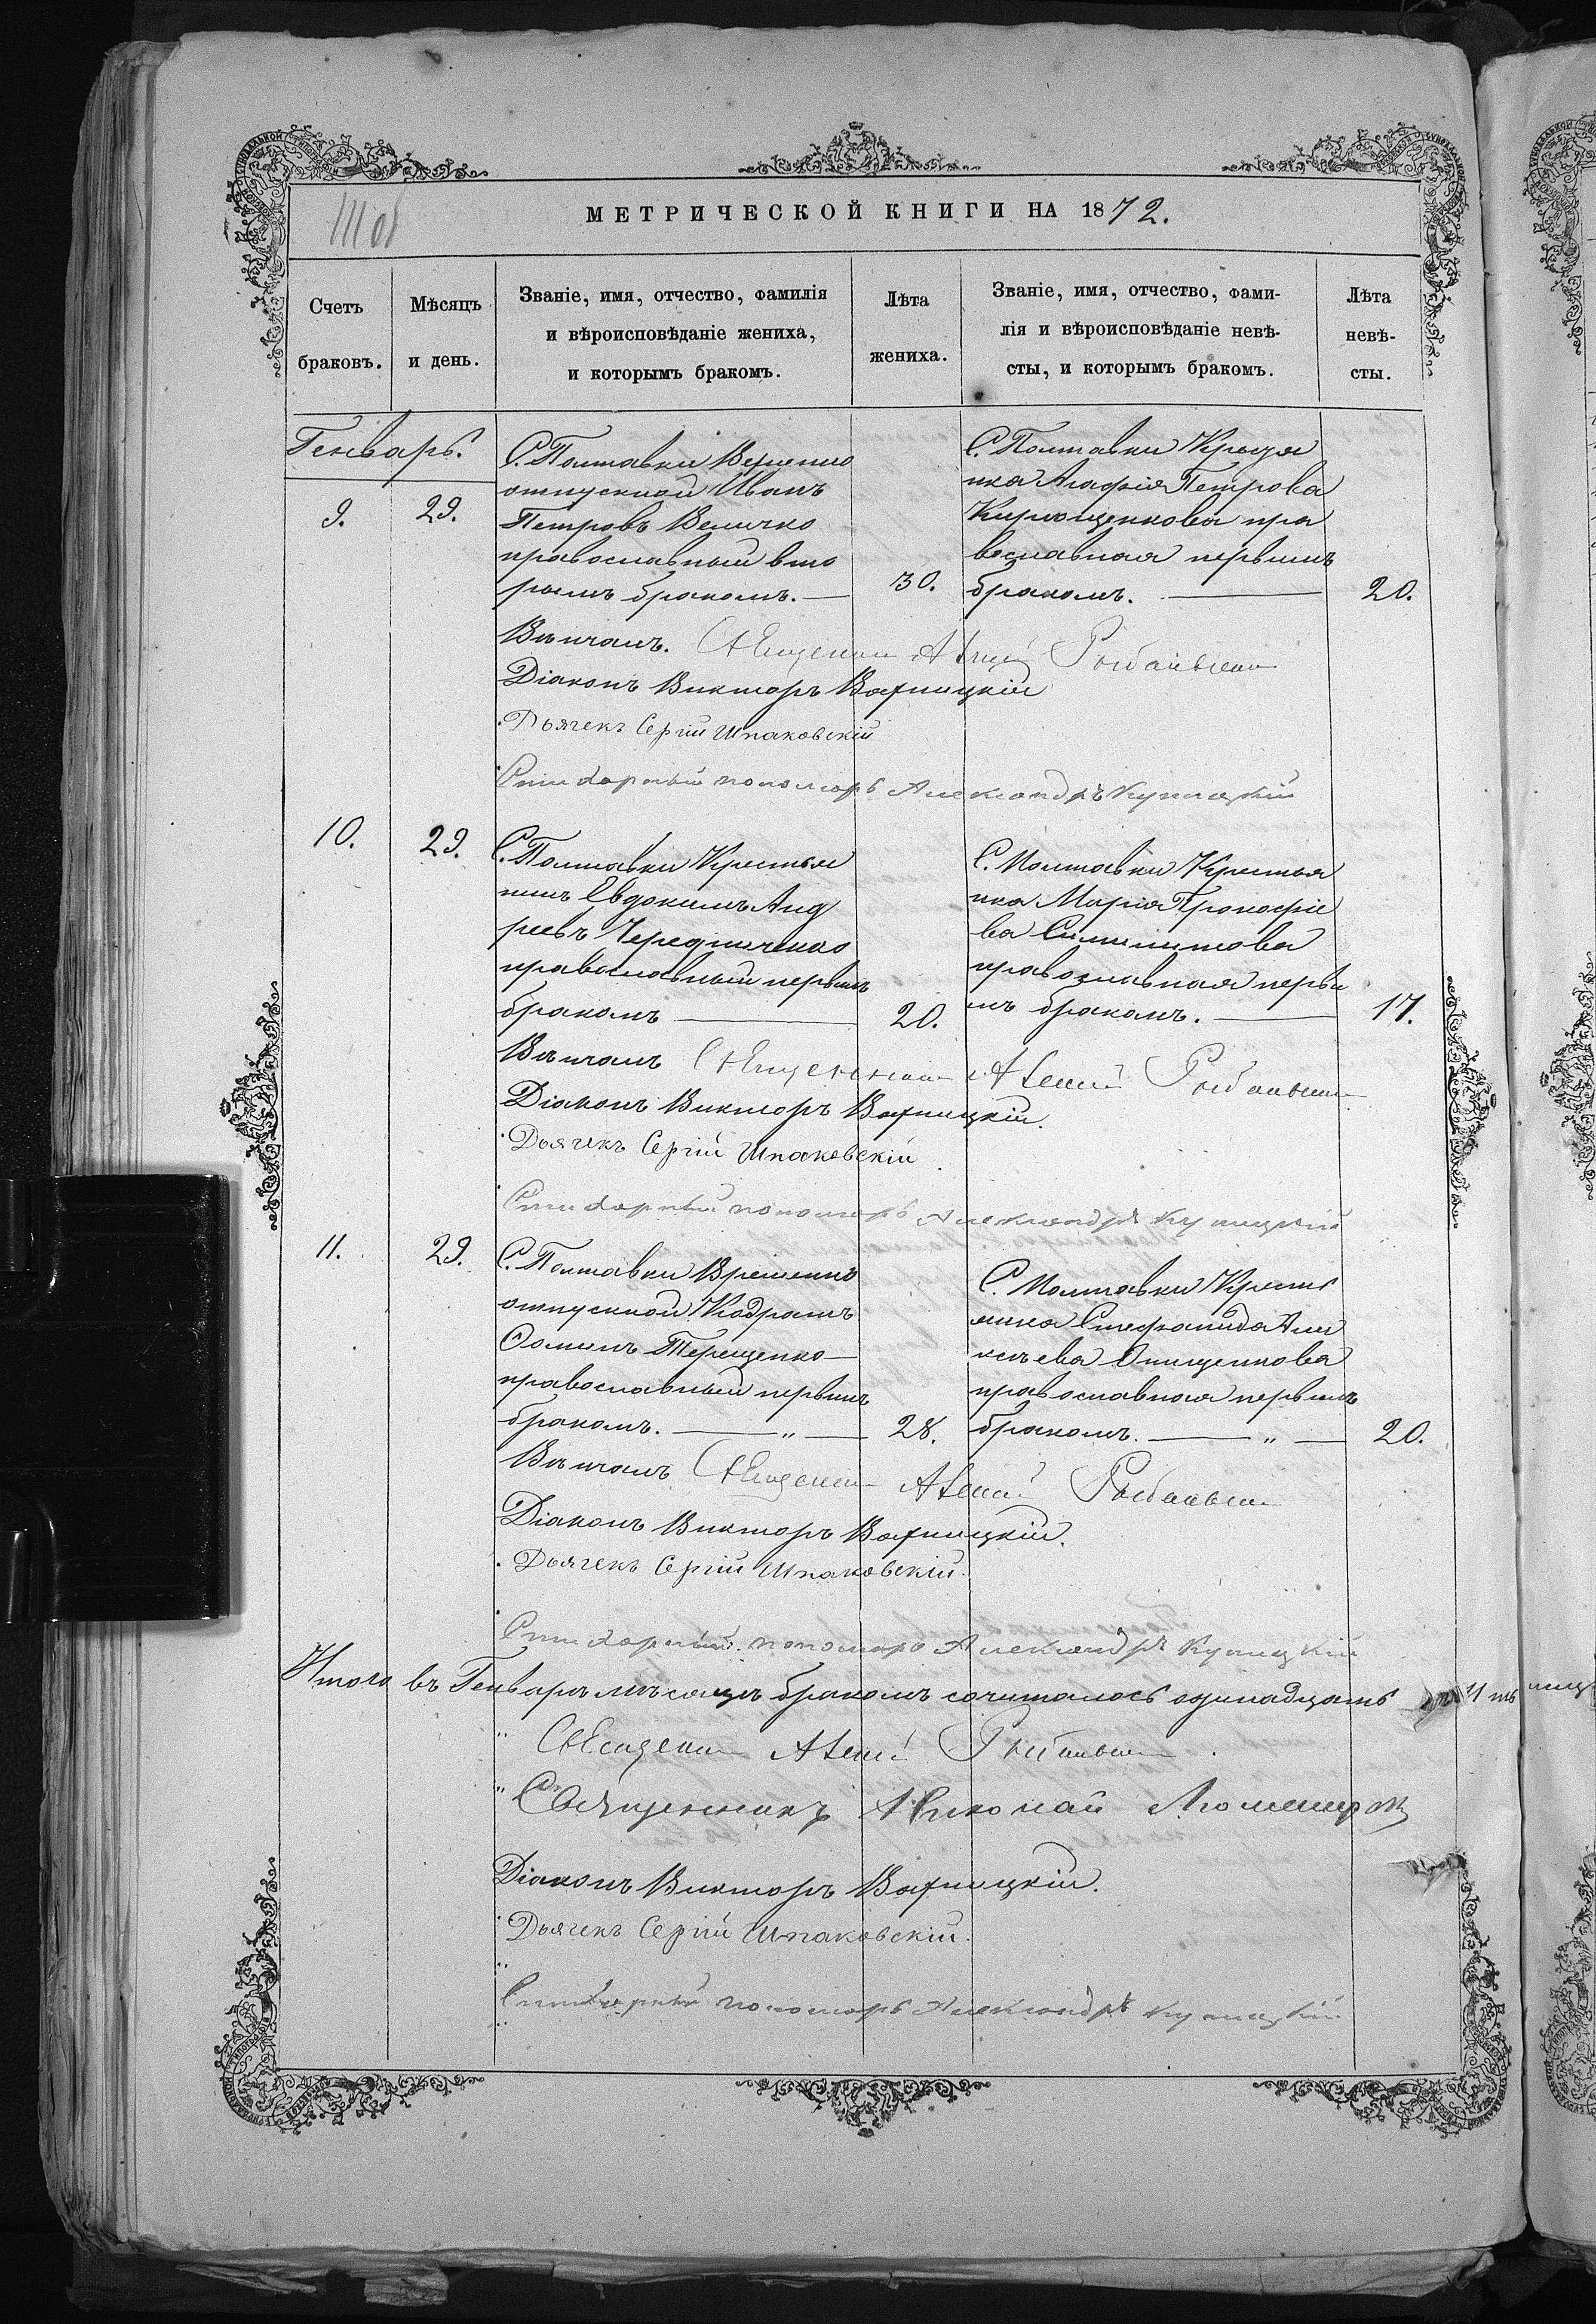 МЕТРИЧЕСКОЙ КНИГИ НА 1872.
Счетъ браковъ.
Мѣсяцъ и день.
Званіе, имя, отчество, фамилія
и вѣроисповѣданіе жениха,
и которымъ бракомъ.
Лѣта жениха.
Званіе, имя, отчество, фами-
лія и вѣроисповѣданіе невѣ-
сты, и которымъ бракомъ.
Лѣта невѣ-
сты.
Генварь.
9. 29.
С. Полтавки Временно
отпускной Иванъ
Петровъ Величко
православный вто
рымъ бракомъ.
30.
С. Полтавки Крестья
нка Агафія Петрова
православная первымъ
бракомъ.
20.
Вѣнчалъ. Священникъ
Діаконъ Викторъ
Дьячекъ Сергій Шпаковскій
Стихарный пономарь Александръ Куницкій
10. 29.
С. Полтавки Крестья
нинъ Евдокимъ Анд
реевъ Чередниченко
православный первымъ
бракомъ
20.
С. Полтавки Крестья
нка Марія Прокофіе
ва
православная первы
мъ бракомъ.
17.
Вѣнчалъ Священникъ
Діаконъ Викторъ
Дьячекъ Сергій Шпаковскій
Стихарный пономарь Александръ Куницкій
11. 29.
С. Полтавки Временно
отпускной Кодратъ
Фоминъ Терещенко
православный первымъ
бракомъ. „
28.
С. Полтавки Кресть
янка Стефанида Але
ксѣева Онищенкова
православная первымъ
бракомъ. „
20.
Вѣнчалъ Священникъ
Діаконъ Викторъ
Дьячекъ Сергій Шпаковскій.
Стихарный пономарь Александръ Куницкій
Итого въ Генварѣ мѣсяцѣ бракомъ сочиталось одинадцать
Священникъ
Священникъ Николай
Діаконъ Викторъ
Дьячекъ Сергій Шпаковскій.
Стихарный пономарь Александръ Куницкій